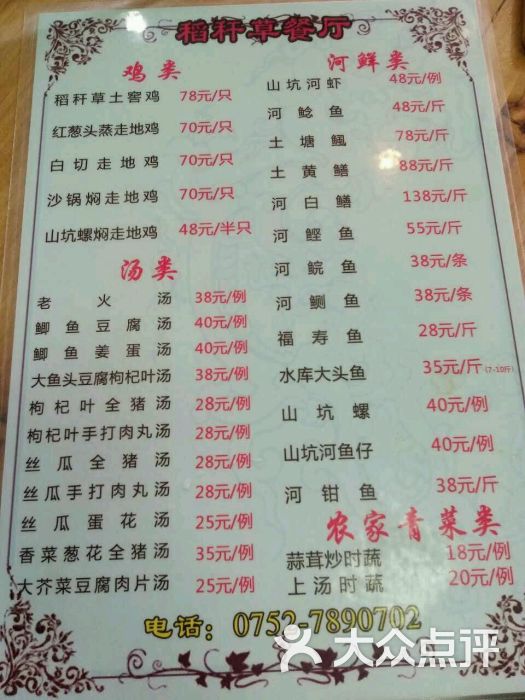 稻秆草餐厅
鸡类
稻秆草土窖鸡 78元/只
红葱头蒸走地鸡 70元/只
白切走地鸡 70元/只
沙锅焖走地鸡 70元/只
山坑螺焖走地鸡 48元/半只
汤类
老火汤 38元/例
鲫鱼豆腐汤 40元/例
鲫鱼姜蛋汤 40元/例
大鱼头豆腐枸杞叶汤 38元/例
枸杞叶全猪汤 28元/例
枸杞叶手打肉丸汤 28元/例
丝瓜全猪汤 28元/例
丝瓜手打肉丸汤 28元/例
丝瓜蛋花汤 25元/例
香菜葱花全猪汤 35元/例
大芥菜豆腐肉片汤 25元/例
河鲜类
山坑河虾 48元/例
河鲶鱼 48元/斤
土塘鲺 78元/斤
土黄鳝 88元/斤
河白鳝 138元/斤
河鲣鱼 55元/斤
河鲩鱼 38元/条
河鲗鱼 38元/条
福寿鱼 28元/斤
水库大头鱼 35元/斤(7-10斤)
山坑螺 40元/例
山坑河鱼仔 40元/例
河钳鱼 38元/斤
农家青菜类
蒜茸炒时蔬 18元/例
上汤时蔬 20元/例
电话：0752-7890702
大众点评